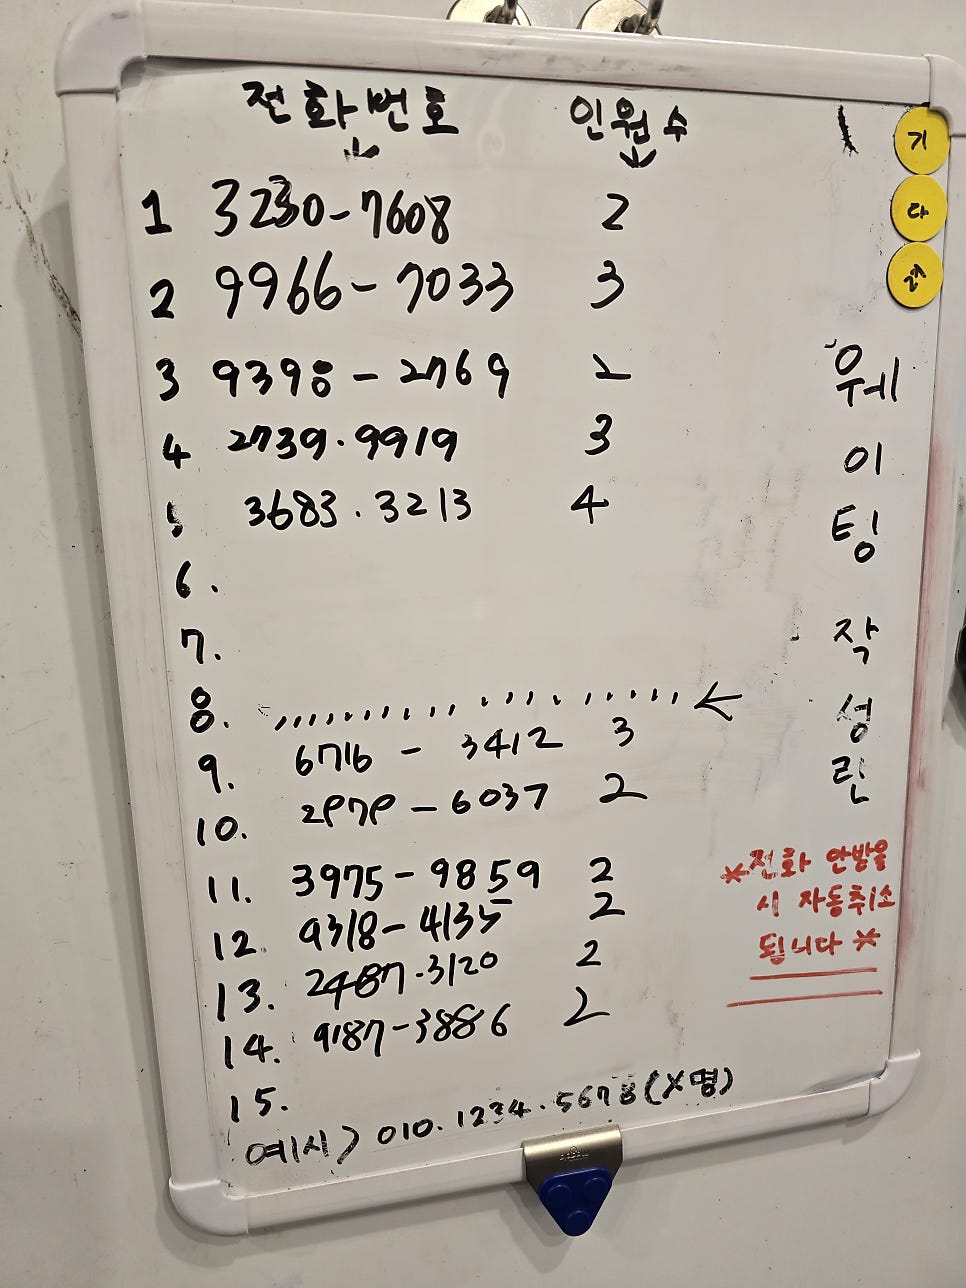 전화번호 인원수
↓ ↓
1 3230-7608 2
2 9966-7033 3
3 9398-2769 2
4 2739.9919 3
3683.3213 4
6.
7.
8. ←
9. 6716 - 3412 3
10. 2979-6037 2
11. 3975-9859 2
12. 9318-4135 2
13. 2487-3120 2
14. 9187-3886 2
15.
예시) 010.1234.5678(X명)
기
다
림
웨
이
팅
작
성
란
*전화 안받을
시 자동취소
됩니다*